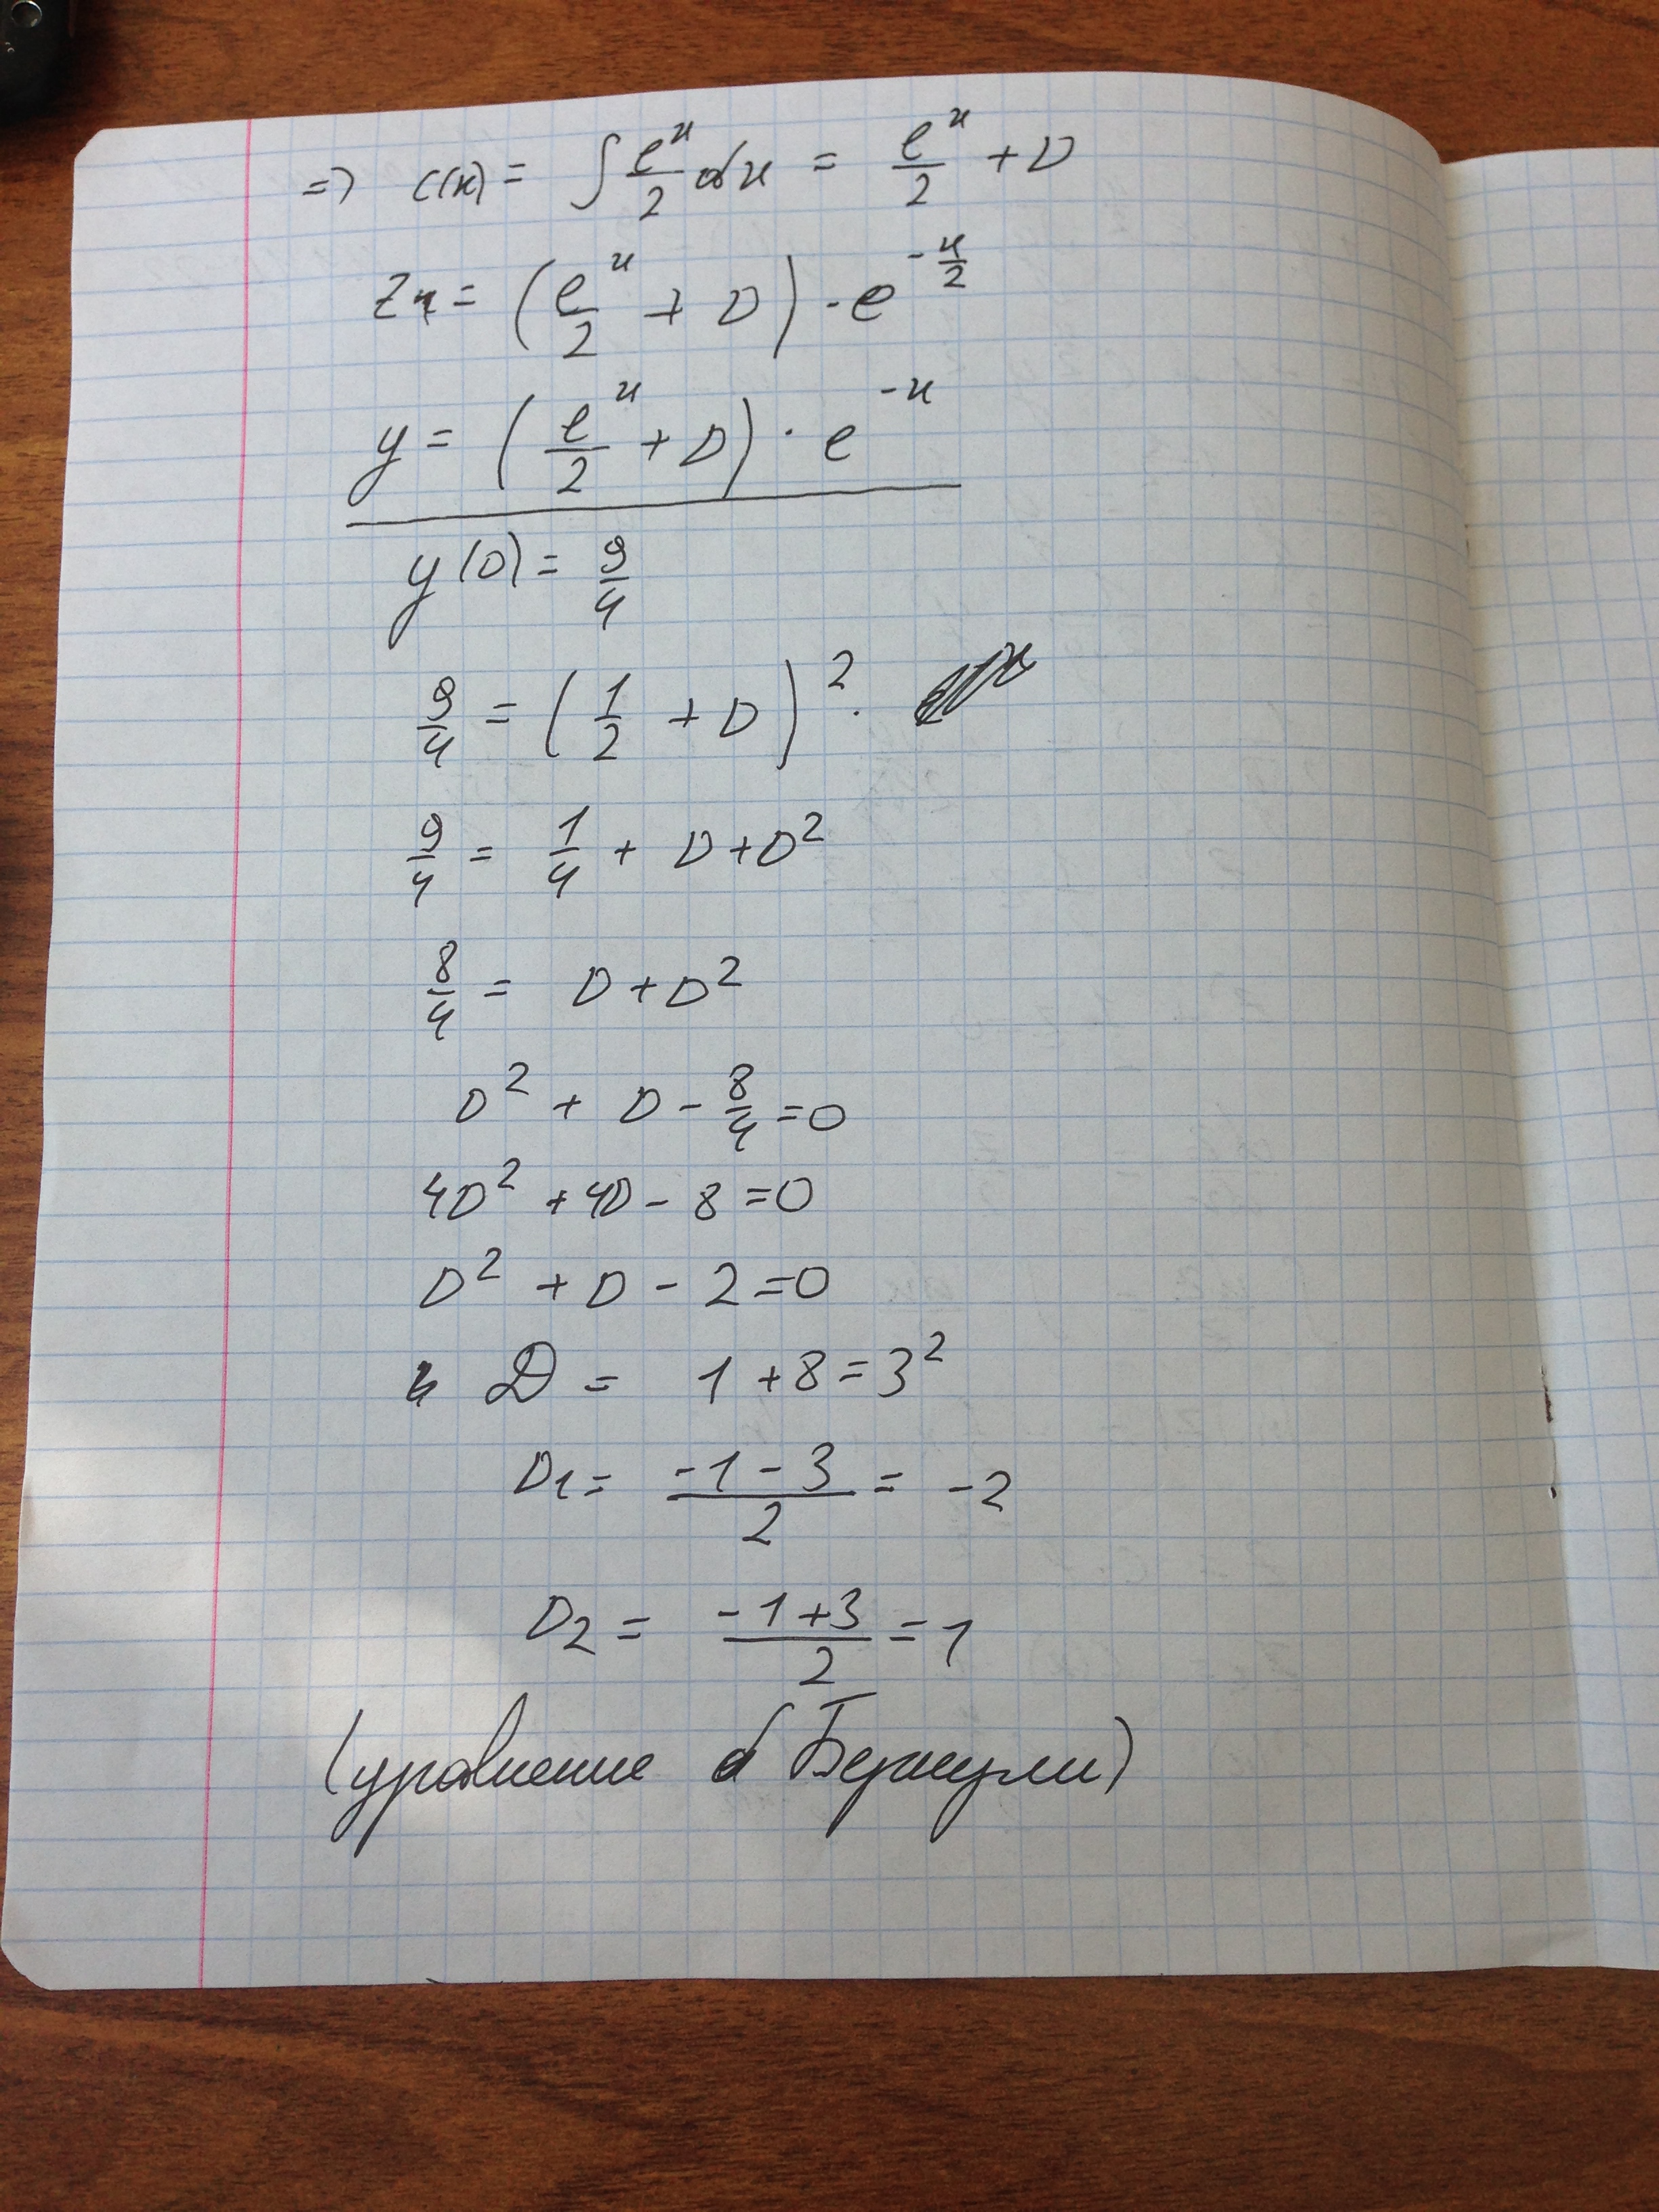 => C(x) = ∫ e^x/2 dx = e^x/2 + D
Zч = (e^x/2 + D) · e^(-x/2)
y = (e^x/2 + D) · e^(-x)
y(0) = 9/4
9/4 = (1/2 + D)^2 ·
9/4 = 1/4 + D + D^2
8/4 = D + D^2
D^2 + D - 8/4 = 0
4D^2 + 4D - 8 = 0
D^2 + D - 2 = 0
D = 1 + 8 = 3^2
D1 = (-1 - 3)/2 = -2
D2 = (-1 + 3)/2 = 1
(уравнение Бернули)